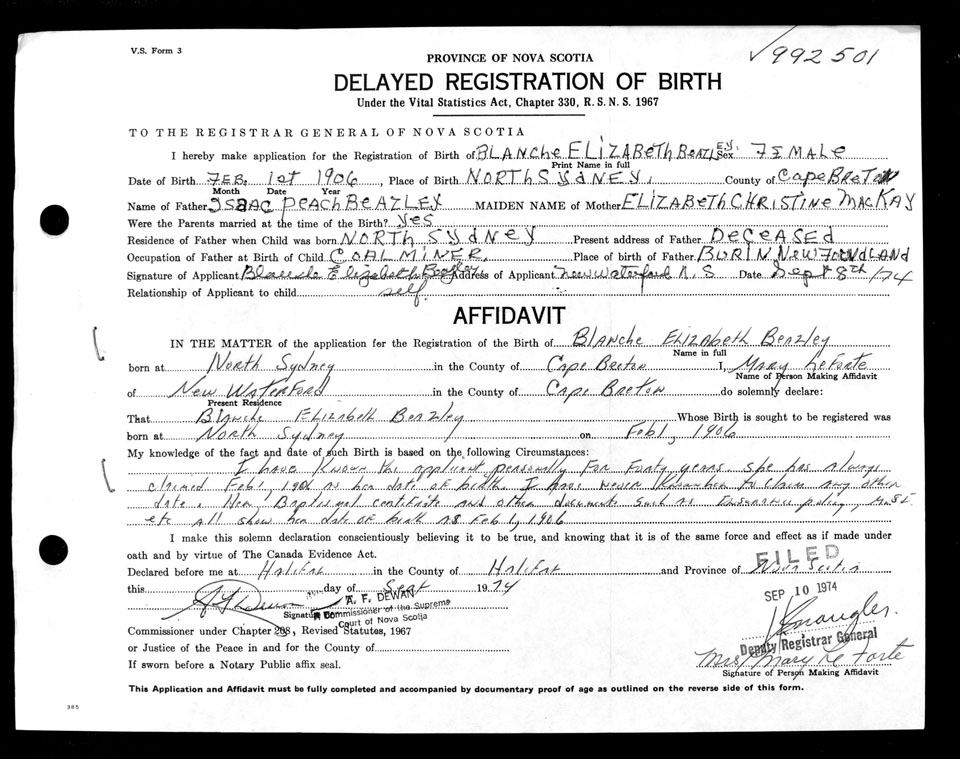 V.S. Form 3
✓992501
PROVINCE OF NOVA SCOTIA
DELAYED REGISTRATION OF BIRTH
Under the Vital Statistics Act, Chapter 330, R. S. N. S. 1967
TO THE REGISTRAR GENERAL OF NOVA SCOTIA
I hereby make application for the Registration of Birth of BLANChe ELIZABeth BEAZLEY Sex FEMALe
Print Name in full
Date of Birth FEB. 1st 1906, Place of Birth NORTh SydNEY, County of Cape BReTON
Month Date Year
Name of Father ISBAC PeAch BeAZLEY MAIDEN NAME of Mother ELIZABeTh CHRISTINe MacKAY
Were the Parents married at the time of the Birth? yes
Residence of Father when Child was born NORTH SydNeY Present address of Father DeCeASEd
Occupation of Father at Birth of Child COALMINER. Place of birth of Father BURIN NewFOUNdLANd
Signature of Applicant Blanche Elizabeth Beazley Address of Applicant New Waterford N.S Date Sept 8th/74
Relationship of Applicant to child self.
AFFIDAVIT
IN THE MATTER of the application for the Registration of the Birth of Blanche Elizabeth Beazley
Name in full
born at North Sydney in the County of Cape Breton I, Mary LeForte
Name of Person Making Affidavit
of New Waterford in the County of Cape Breton do solemnly declare:
Present Residence
That Blanche Elizabeth Beazley Whose Birth is sought to be registered was
born at North Sydney on Feb 1, 1906
My knowledge of the fact and date of such Birth is based on the following Circumstances:
I have Known the applicant personally For Forty years she has always
claimed Feb 1, 1906 as her date of birth. I have never Known her to claim any other
date. Her Baptismal certificate and other documents such as Insurance policy,
etc all show her date of birth as Feb 1, 1906
I make this solemn declaration conscientiously believing it to be true, and knowing that it is of the same force and effect as if made under
oath and by virtue of The Canada Evidence Act.
Declared before me at Halifax in the County of Halifax and Province of Nova Scotia
FILED
this day of Sept 1974
SEP 10 1974
A. F. DEWAN
Signature
A Commissioner of the Supreme
Court of Nova Scotia
Commissioner under Chapter 208, Revised Statutes, 1967
or Justice of the Peace in and for the County of
Deputy Registrar General
If sworn before a Notary Public affix seal.
Mrs Mary Le Forte
Signature of Person Making Affidavit
This Application and Affidavit must be fully completed and accompanied by documentary proof of age as outlined on the reverse side of this form.
385